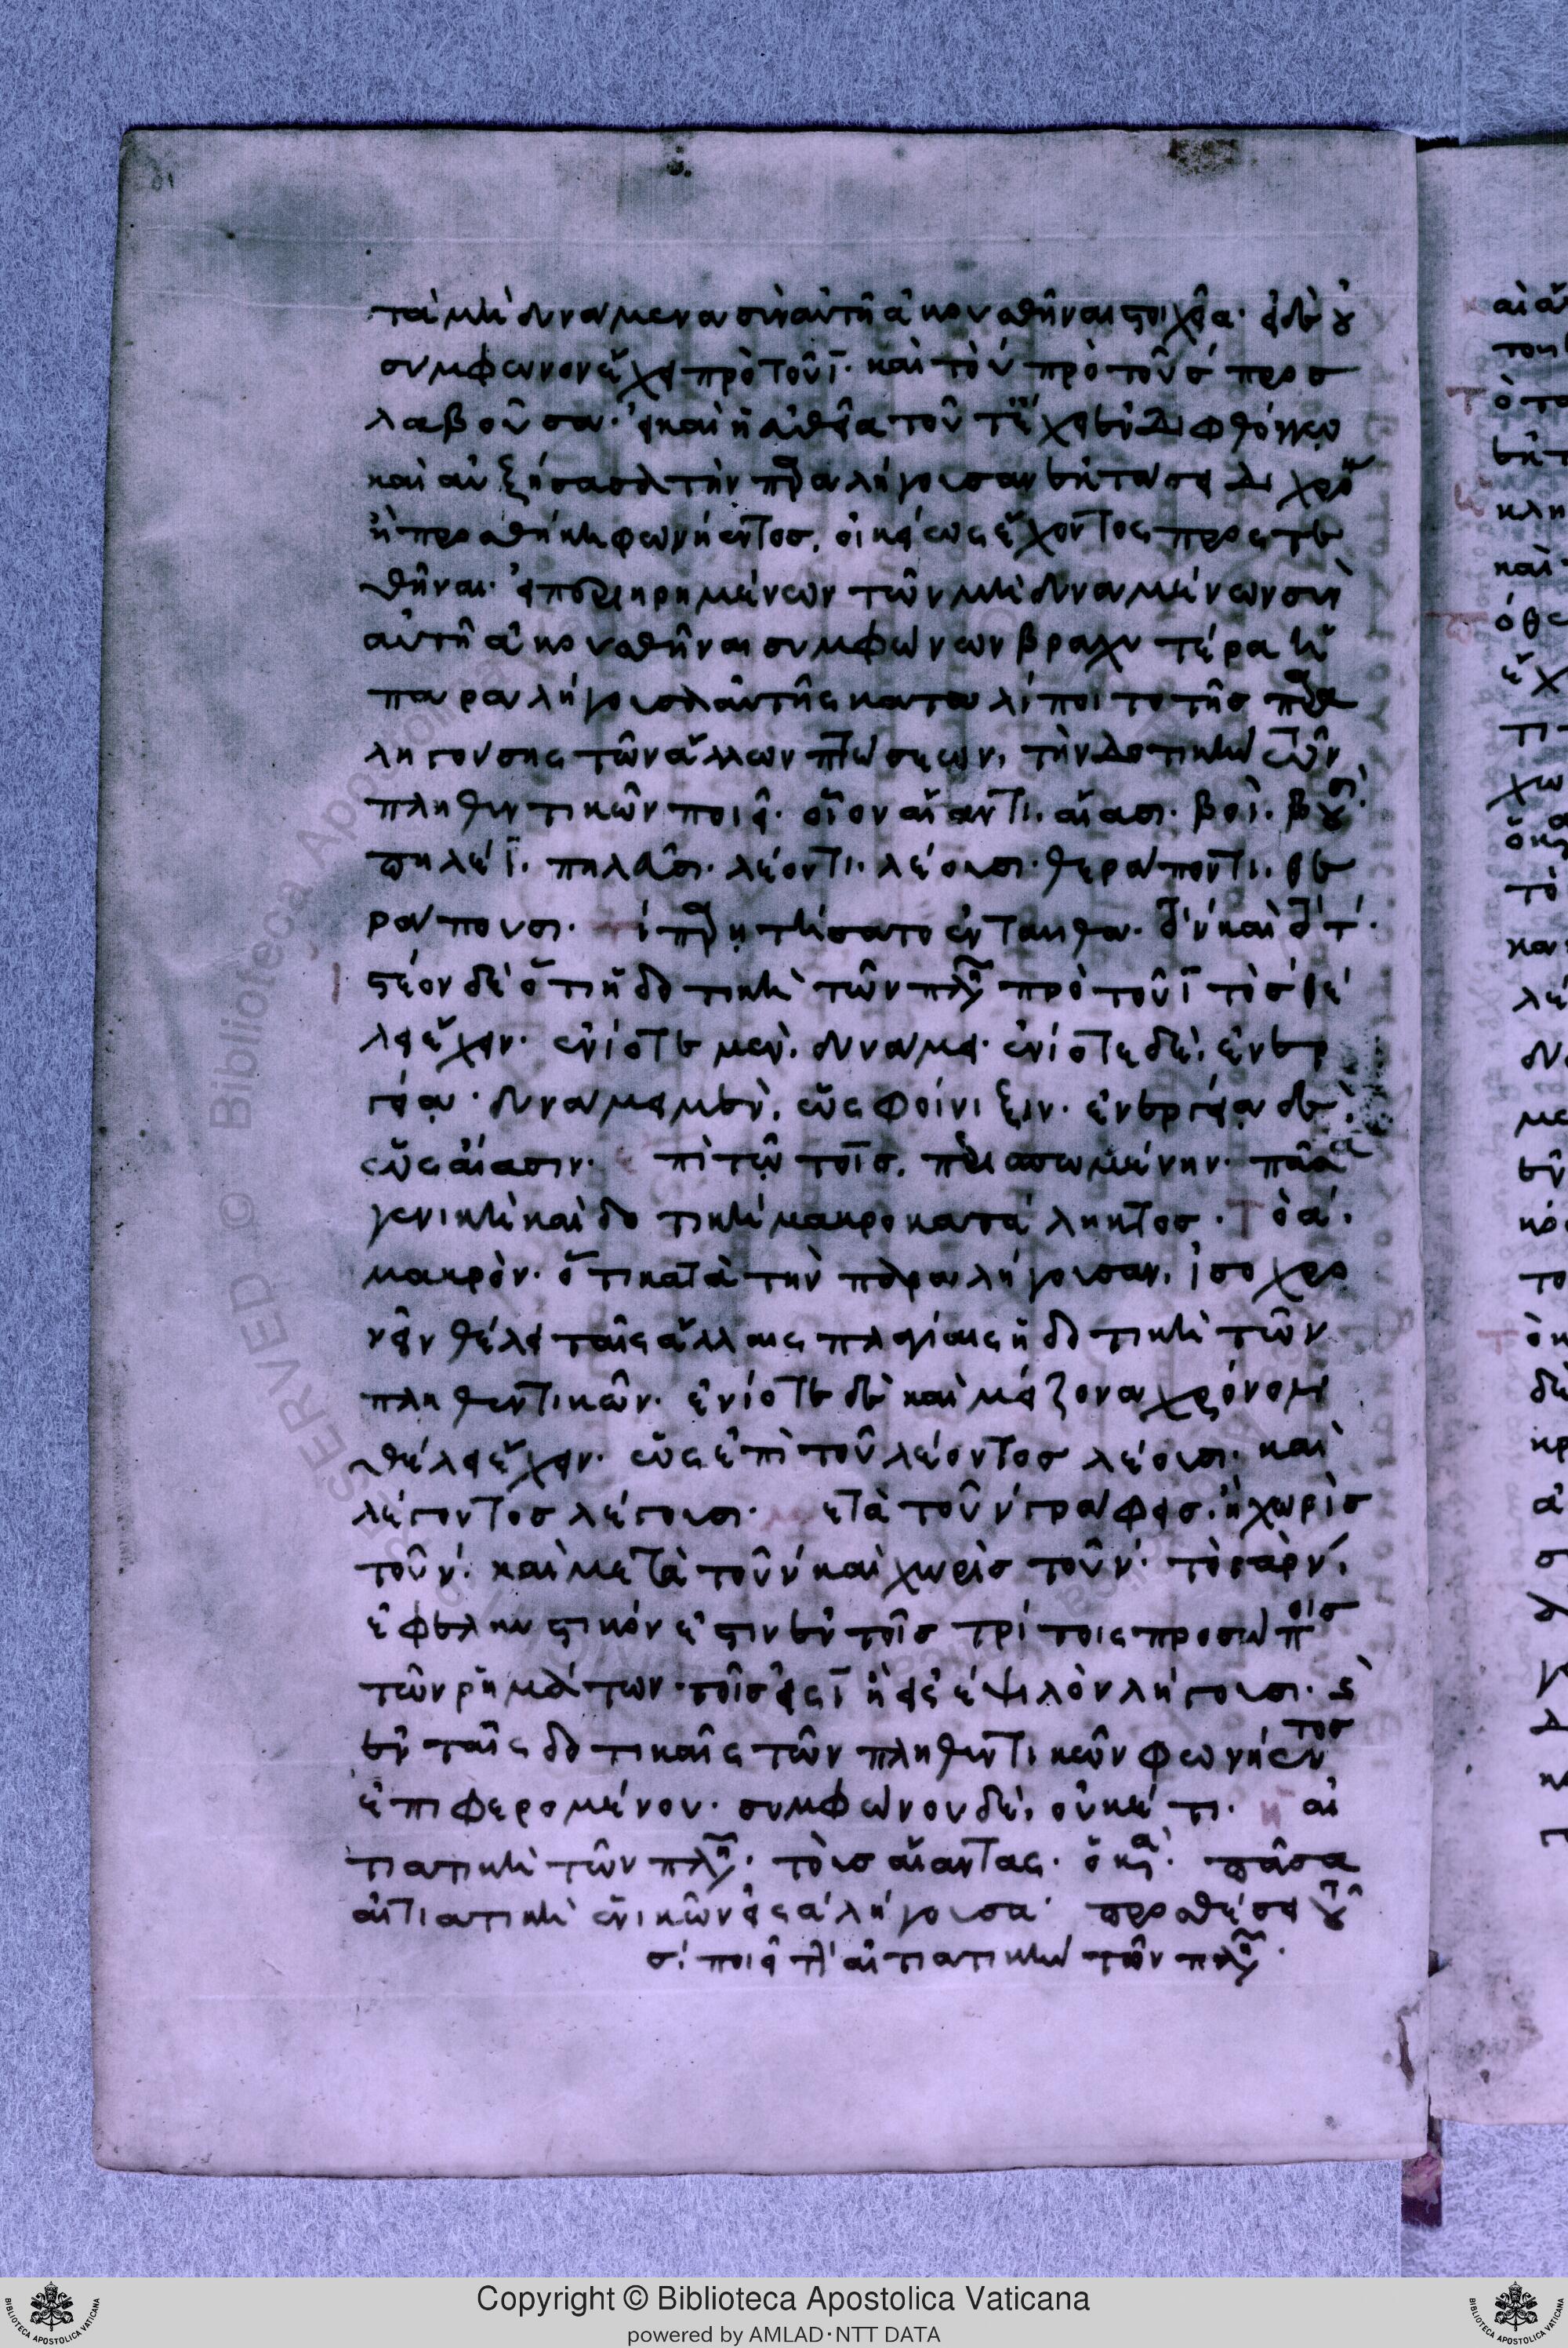 τὰ μὴ δυνάμενα σὺν αὐτῆ ἀκουσθῆναι στοιχεῖα· εἰ δὲ οὐ
σύμφωνον εἶχε πρὸ τοῦ ϊ· καὶ τὸ ν πρὸ τοῦ σ προσ
λαβοῦσα· εἰ καὶ ἡ εὐθεῖα τοῦτ' ἔχει ἐν διφθόγγω
καὶ αὐξήσασα τὴν παραλήγουσαν ἐκτάσει διχρό
ἢ προσθήκη φωνήεντοσ, οἰκείως ἔχοντος προστε
θῆναι· εἰ τῶν μὴ δυναμένων σὺν
αὐτῆ ἀκουσθῆναι συμφώνων βραχυτέρα ἡ
παραλήγουσα αὐτῆς καταλίποιτο τῆσ παρα
ληγούσης τῶν ἄλλων πτώσεων, τὴν δοτικὴν τῶν
πληθυντικῶν ποιεῖ· οἷον αἴαντι, αἴασι· βοῒ, βουσὶ·
πηλέϊ, πηλεῦσι· λέοντι, λέουσι· θεράποντι, θε
ράπουσι· παρητήσατο ἐνταῦθα· δ ν καὶ δ τ·
στέον δὲ ὅτι ἡ δοτικὴ τῶν πλη πρὸ τοῦ ϊ τὸ σ θέ
λει ἔχειν· ἐνίοτε μὲν, δυνάμει· ἐνίοτε δὲ, ἐνερ
γεία· δυνάμει μὲν, ὡς φοίνιξιν· ἐνεργεία δὲ,
ὡς αἴασιν· ε πὶ τῶ τοῖσ, περισπωμένην· πᾶσα
γενικὴ καὶ δοτικὴ μακροκατάληκτοσ· Τ ὸ α,
μακρὸν· ὅτι κατὰ τὴν παραλήγουσαν, ἰσοχρο
νεῖν θέλει ταῖς ἄλλαις πλαγίαις ἡ δοτικὴ τῶν
πληθυντικῶν· ἐνίοτε δὲ καὶ μείζονα χρόνον
θέλει ἔχειν· ὡς ἐπὶ τοῦ λέοντοσ λέουσι· καὶ
λέγοντοσ λέγουσι· μ ετὰ τοῦ ν γράφεισ, ἢ χωρὶσ
τοῦ ν· καὶ μετὰ τοῦ ν καὶ χωρὶσ τοῦ ν· τὸ γὰρ ν,
ἐφελκυστικόν ἐστιν ἐν τοῖσ τρίτοις προσώποισ
τῶν ῥημάτων· τοῖσ εἰς ϊ ἢ εἰς ἐψιλὸν λήγουσι· καὶ
ἐν ταῖς δοτικαῖς τῶν πληθυντικῶν φωνήεντοσ
ἐπιφερομένου· συμφώνου δὲ, οὐκέτι· ἡ αἰ
τιατικὴ τῶν πλη· τοὺσ αἴαντας· ὁ κα· πᾶσα
αἰτιατικὴ ἑνικῶν εἰς α λήγουσα· προσθέσει τοῦ
σ, ποιεῖ τὴν αἰτιατικὴν τῶν πλη·
Copyright © Biblioteca Apostolica Vaticana
powered by AMLAD·NTT DATA